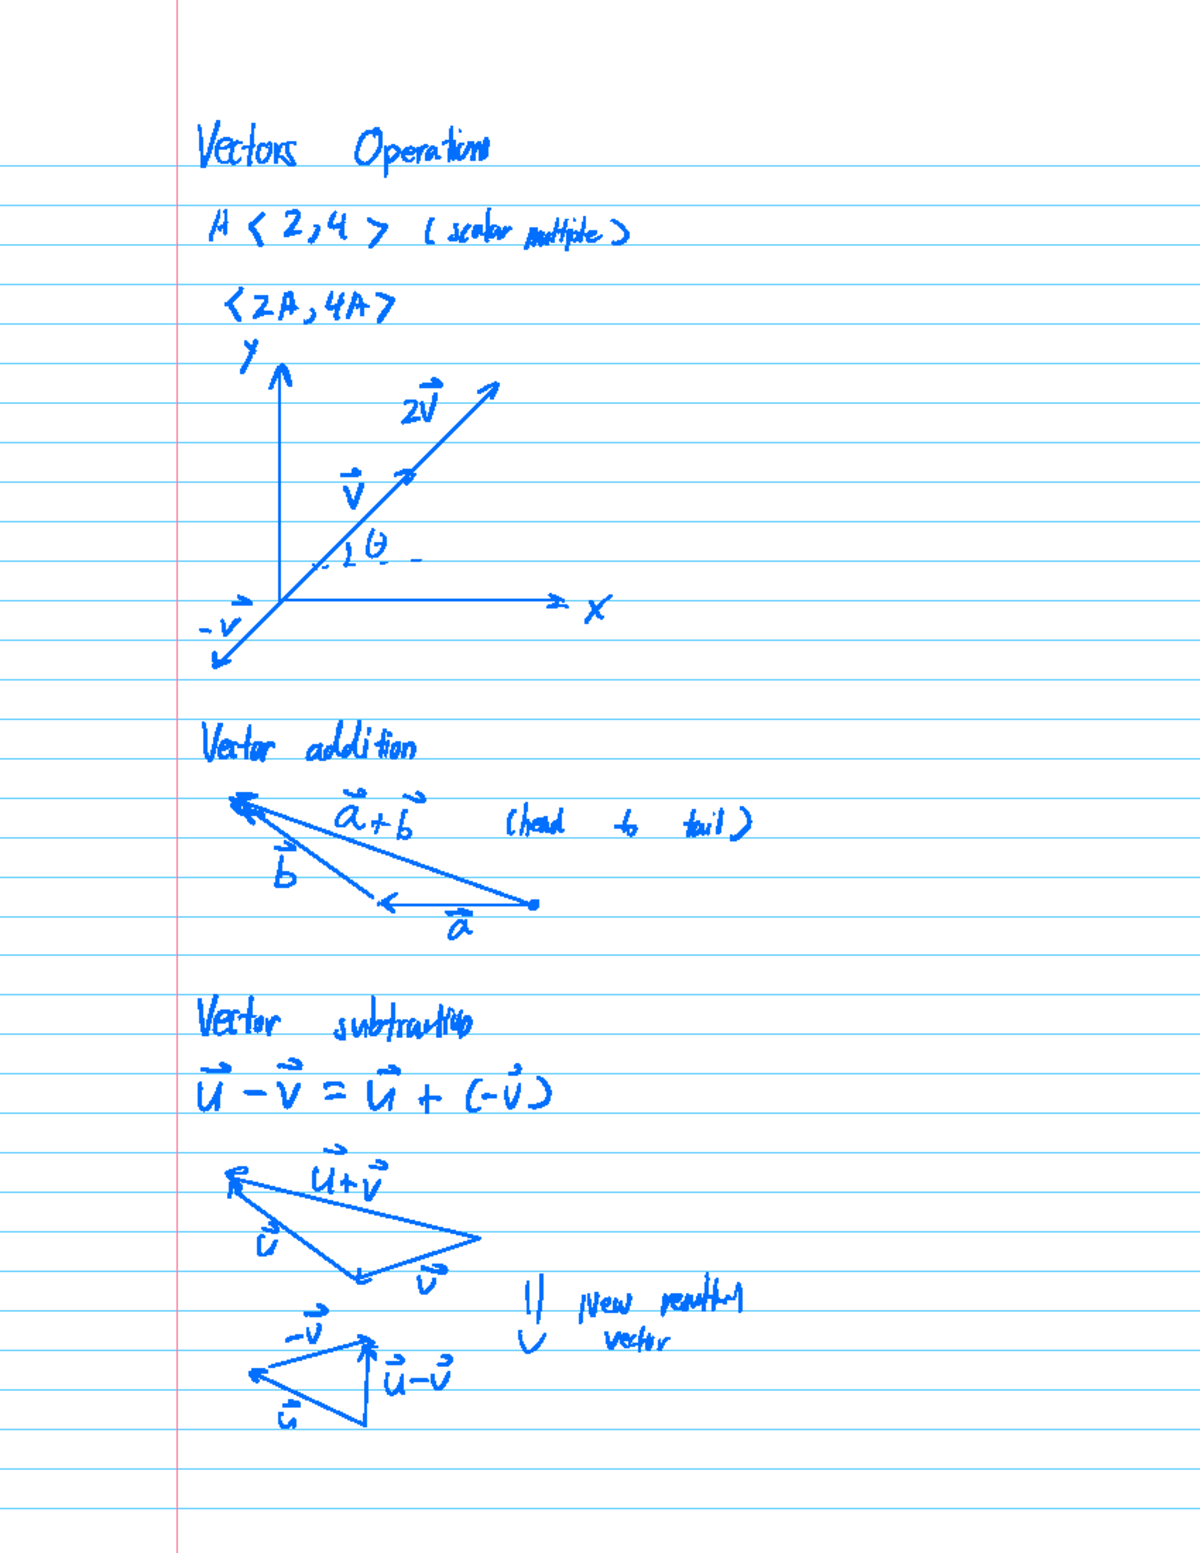 Vectors Operations
A < 2, 4 > (scalar multiple)
< 2A, 4A >
y
2v⃗
v⃗
θ
x
-v⃗
Vector addition
a⃗ + b⃗ (head to tail)
b⃗
a⃗
Vector subtraction
u⃗ - v⃗ = u⃗ + (-v⃗)
u⃗ + v⃗
u⃗
v⃗
New resulting
vector
-v⃗
u⃗ - v⃗
u⃗